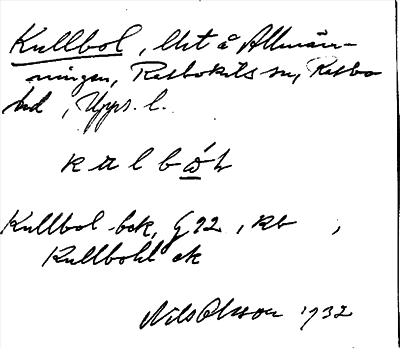 Kullbol, lht å Allmän-
ningen, Rasbokils sn, Rasbo
hd, Upps. l.
Kullbol bck, G 92, kb ,
Kullbohl ek
Nils Olsson 1932